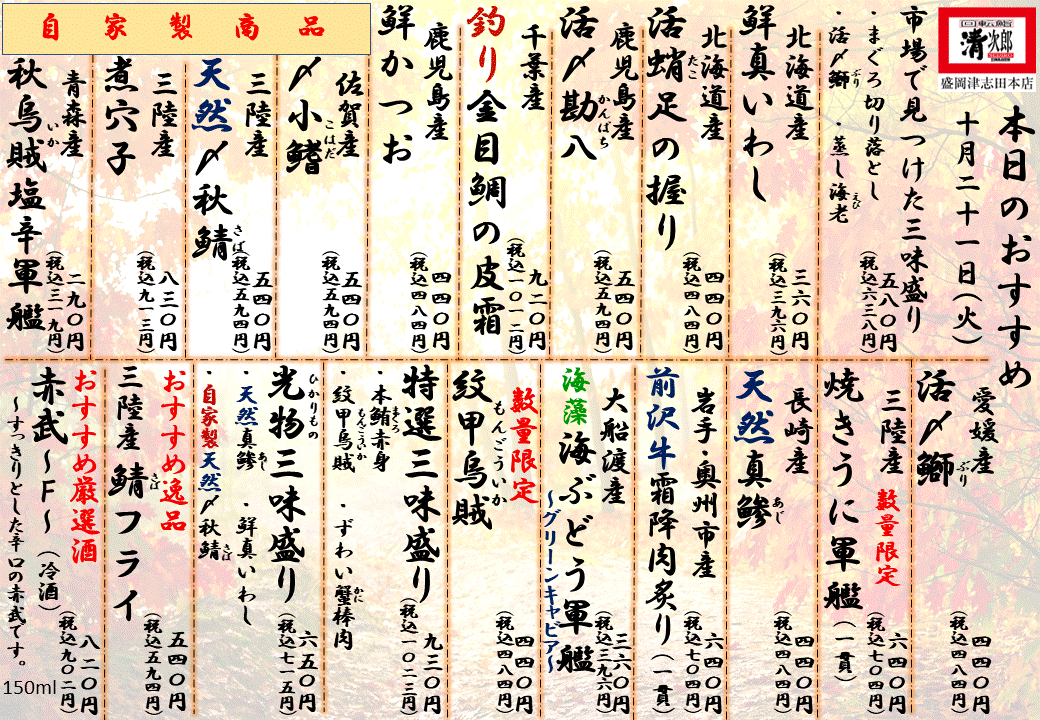 回転鮨
清次郎
盛岡津志田本店
本日のおすすめ
十月二十一日(火)
市場で見つけた三味盛り
・まぐろ切り落とし
・活〆鰤 ・蒸し海老
ぶり
えび
五八〇円
(税込六三八円)
北海道産
鮮真いわし
三六〇円
(税込三九六円)
北海道産
活蛸足の握り
たこ
四四〇円
(税込四八四円)
鹿児島産
活〆勘八
かんぱち
五四〇円
(税込五九四円)
千葉産
釣り金目鯛の皮霜
九二〇円
(税込一〇一二円)
鹿児島産
鮮かつお
四四〇円
(税込四八四円)
自家製商品
佐賀産
〆小鰭
こはだ
五四〇円
(税込五九四円)
三陸産
天然〆秋鯖
さば
五四〇円
(税込五九四円)
三陸産
煮穴子
八三〇円
(税込九一三円)
青森産
秋烏賊塩辛軍艦
いか
二九〇円
(税込三一九円)
愛媛産
活〆鰤
ぶり
四四〇円
(税込四八四円)
三陸産 数量限定
焼きうに軍艦(一貫)
六四〇円
(税込七〇四円)
長崎産
天然真鯵
あじ
四四〇円
(税込四八四円)
岩手・奥州市産
前沢牛霜降肉炙り(一貫)
六四〇円
(税込七〇四円)
大船渡産
海藻海ぶどう軍艦
~グリーンキャビア~
三六〇円
(税込三九六円)
数量限定
紋甲烏賊
もんごういか
四四〇円
(税込四八四円)
特選三味盛り
・本鮪赤身 ・ずわい蟹棒肉
まぐろ
かに
・紋甲烏賊
もんごういか
九三〇円
(税込一〇二三円)
光物三味盛り
ひかりもの
・天然真鯵 ・鮮真いわし
あじ
・自家製天然〆秋鯖
さば
六五〇円
(税込七一五円)
おすすめ逸品
三陸産 鯖フライ
さば
五四〇円
(税込五九四円)
おすすめ厳選酒
赤武~F~(冷酒)
~すっきりとした辛口の赤武です。
八二〇円
(税込九〇二円)
150ml